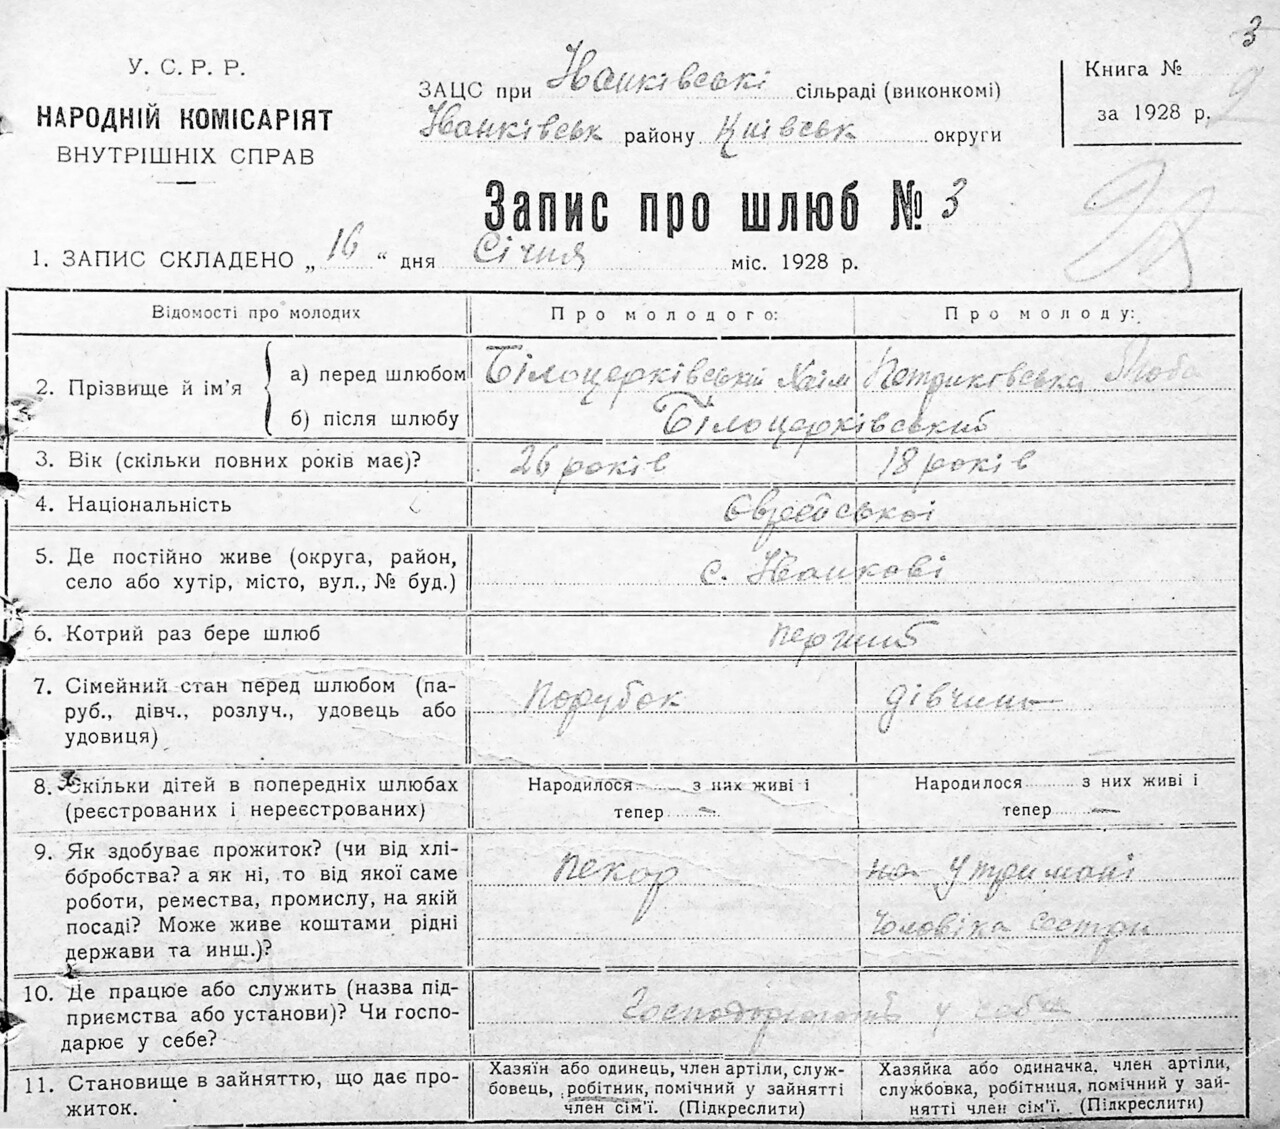 3
У. С. Р. Р.
НАРОДНІЙ КОМІСАРІЯТ
ВНУТРІШНІХ СПРАВ
ЗАЦС при Іванківські сільраді (виконкомі)
Іванківськ району Київськ округи
Книга №
за 1928 р.
Запис про шлюб № 3
1. ЗАПИС СКЛАДЕНО „ 16 “ дня Січня міс. 1928 р.
Відомості про молодих
Про молодого:
Про молоду:
2. Прізвище й ім’я
а) перед шлюбом
Білоцерківський Хаїм
Петриковська Люба
б) після шлюбу
Білоцерківський
3. Вік (скільки повних років має)?
26 років
18 років
4. Національність
Єврейської
5. Де постійно живе (округа, район,
село або хутір, місто, вул., № буд.)
с. Іванкові
6. Котрий раз бере шлюб
перший
7. Сімейний стан перед шлюбом (па-
руб., дівч., розлуч., удовець або
удовиця)
порубок
дівчина
8. Скільки дітей в попередніх шлюбах
(реєстрованих і нереєстрованих)
Народилося з них живі і
тепер —
Народилося з них живі і
тепер —
9. Як здобуває прожиток? (чи від хлі-
боробства? а як ні, то від якої саме
роботи, ремества, промислу, на якій
посаді? Може живе коштами рідні
держави та инш.)?
пекар
на утримані
чоловіка сестри
10. Де працює або служить (назва під-
приємства або установи)? Чи госпо-
дарює у себе?
у себе
11. Становище в зайняттю, що дає про-
житок.
Хазяїн або одинець, член артіли, служ-
бовець, робітник, помічний у зайнятті
член сім’ї. (Підкреслити)
Хазяйка або одиначка, член артіли,
службовка, робітниця, помічний у зай-
нятті член сім’ї. (Підкреслити)